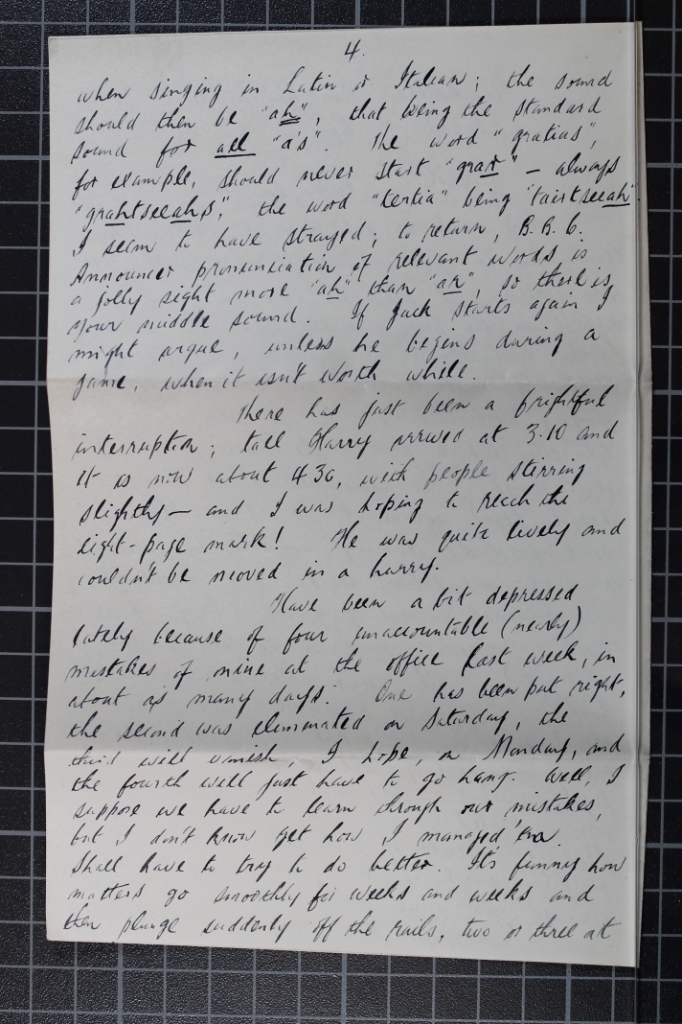 4.
when singing in Latin or Italian; the sound
should then be "ah", that being the standard
sound for all "a's". The word "gratias",
for example, should never start "grat" — always
"grahtseeahs", the word "tertia" being "tairtseeah".
I seem to have strayed; to return, B.B.C.
Announcer pronunciation of relevant words is
a jolly sight more "ah" than "ar", so there is
your middle sound. If Jack starts again I
might argue, unless he begins during a
game, when it isn't worth while.
There has just been a frightful
interruption; tall Harry arrived at 3.10 and
it is now about 4.30, with people stirring
slightly — and I was hoping to reach the
eight-page mark! He was quite lively and
couldn't be moved in a hurry.
Have been a bit depressed
lately because of four unaccountable (nearly)
mistakes of mine at the office last week, in
about as many days. One has been put right,
the second was eliminated on Saturday, the
third will vanish, I hope, on Monday, and
the fourth will just have to go hang. Well, I
suppose we have to learn through our mistakes,
but I don't know yet how I managed 'em.
Shall have to try to do better. It's funny how
matters go smoothly for weeks and weeks and
then plunge suddenly off the rails, two or three at